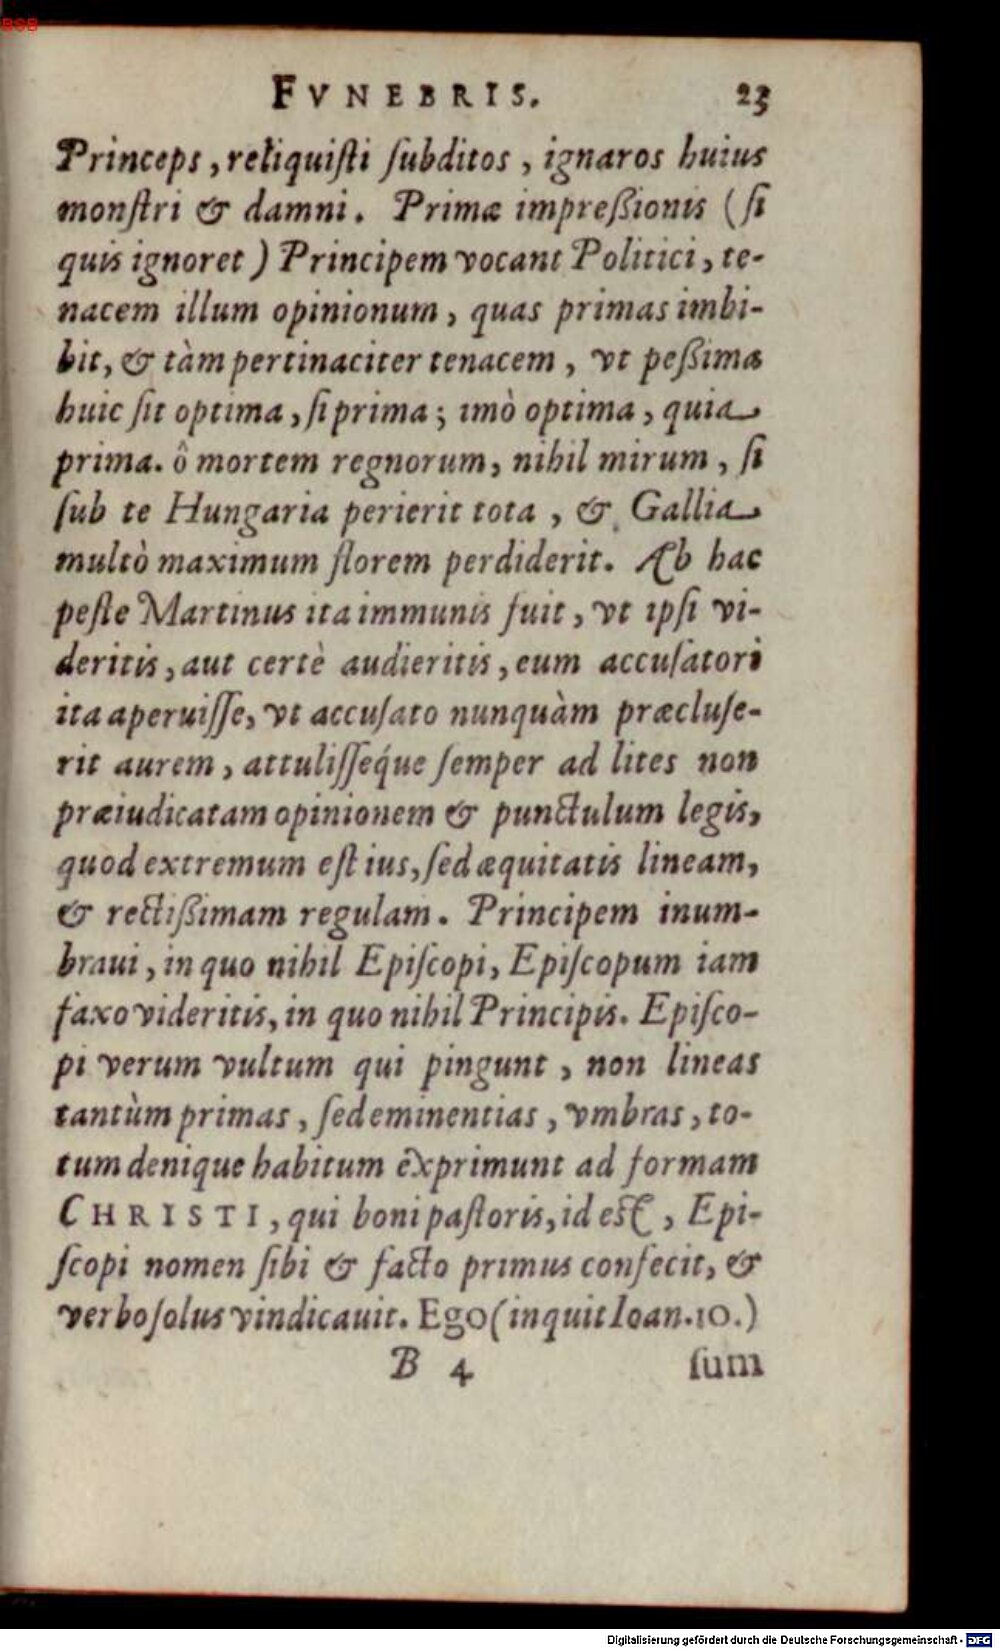 BSB
FVNEBRIS. 23
Princeps, reliquiſti ſubditos, ignaros huius
monſtri & damni. Primæ impreßionis (ſi
quis ignoret) Principem vocant Politici, te-
nacem illum opinionum, quas primas imbi-
bit, & tàm pertinaciter tenacem, vt peßima
huic ſit optima, ſi prima; imò optima, quia
prima. ô mortem regnorum, nihil mirum, ſi
ſub te Hungaria perierit tota, & Gallia
multò maximum florem perdiderit. Ab hac
peſte Martinus ita immunis fuit, vt ipſi vi-
deritis, aut certè audieritis, eum accuſatori
ita aperuiſſe, vt accuſato nunquàm præcluſe-
rit aurem, attuliſſeq́ue ſemper ad lites non
præiudicatam opinionem & punctulum legis,
quod extremum eſt ius, ſed æquitatis lineam,
& rectißimam regulam. Principem inum-
braui, in quo nihil Epiſcopi, Epiſcopum iam
faxo videritis, in quo nihil Principis. Epiſco-
pi verum vultum qui pingunt, non lineas
tantùm primas, ſed eminentias, vmbras, to-
tum denique habitum exprimunt ad formam
CHRISTI, qui boni paſtoris, id eſt, Epi-
ſcopi nomen ſibi & facto primus confecit, &
verbo ſolus vindicauit. Ego (inquit Ioan. 10.)
B 4 ſum
Digitalisierung gefördert durch die Deutsche Forschungsgemeinschaft - DFG